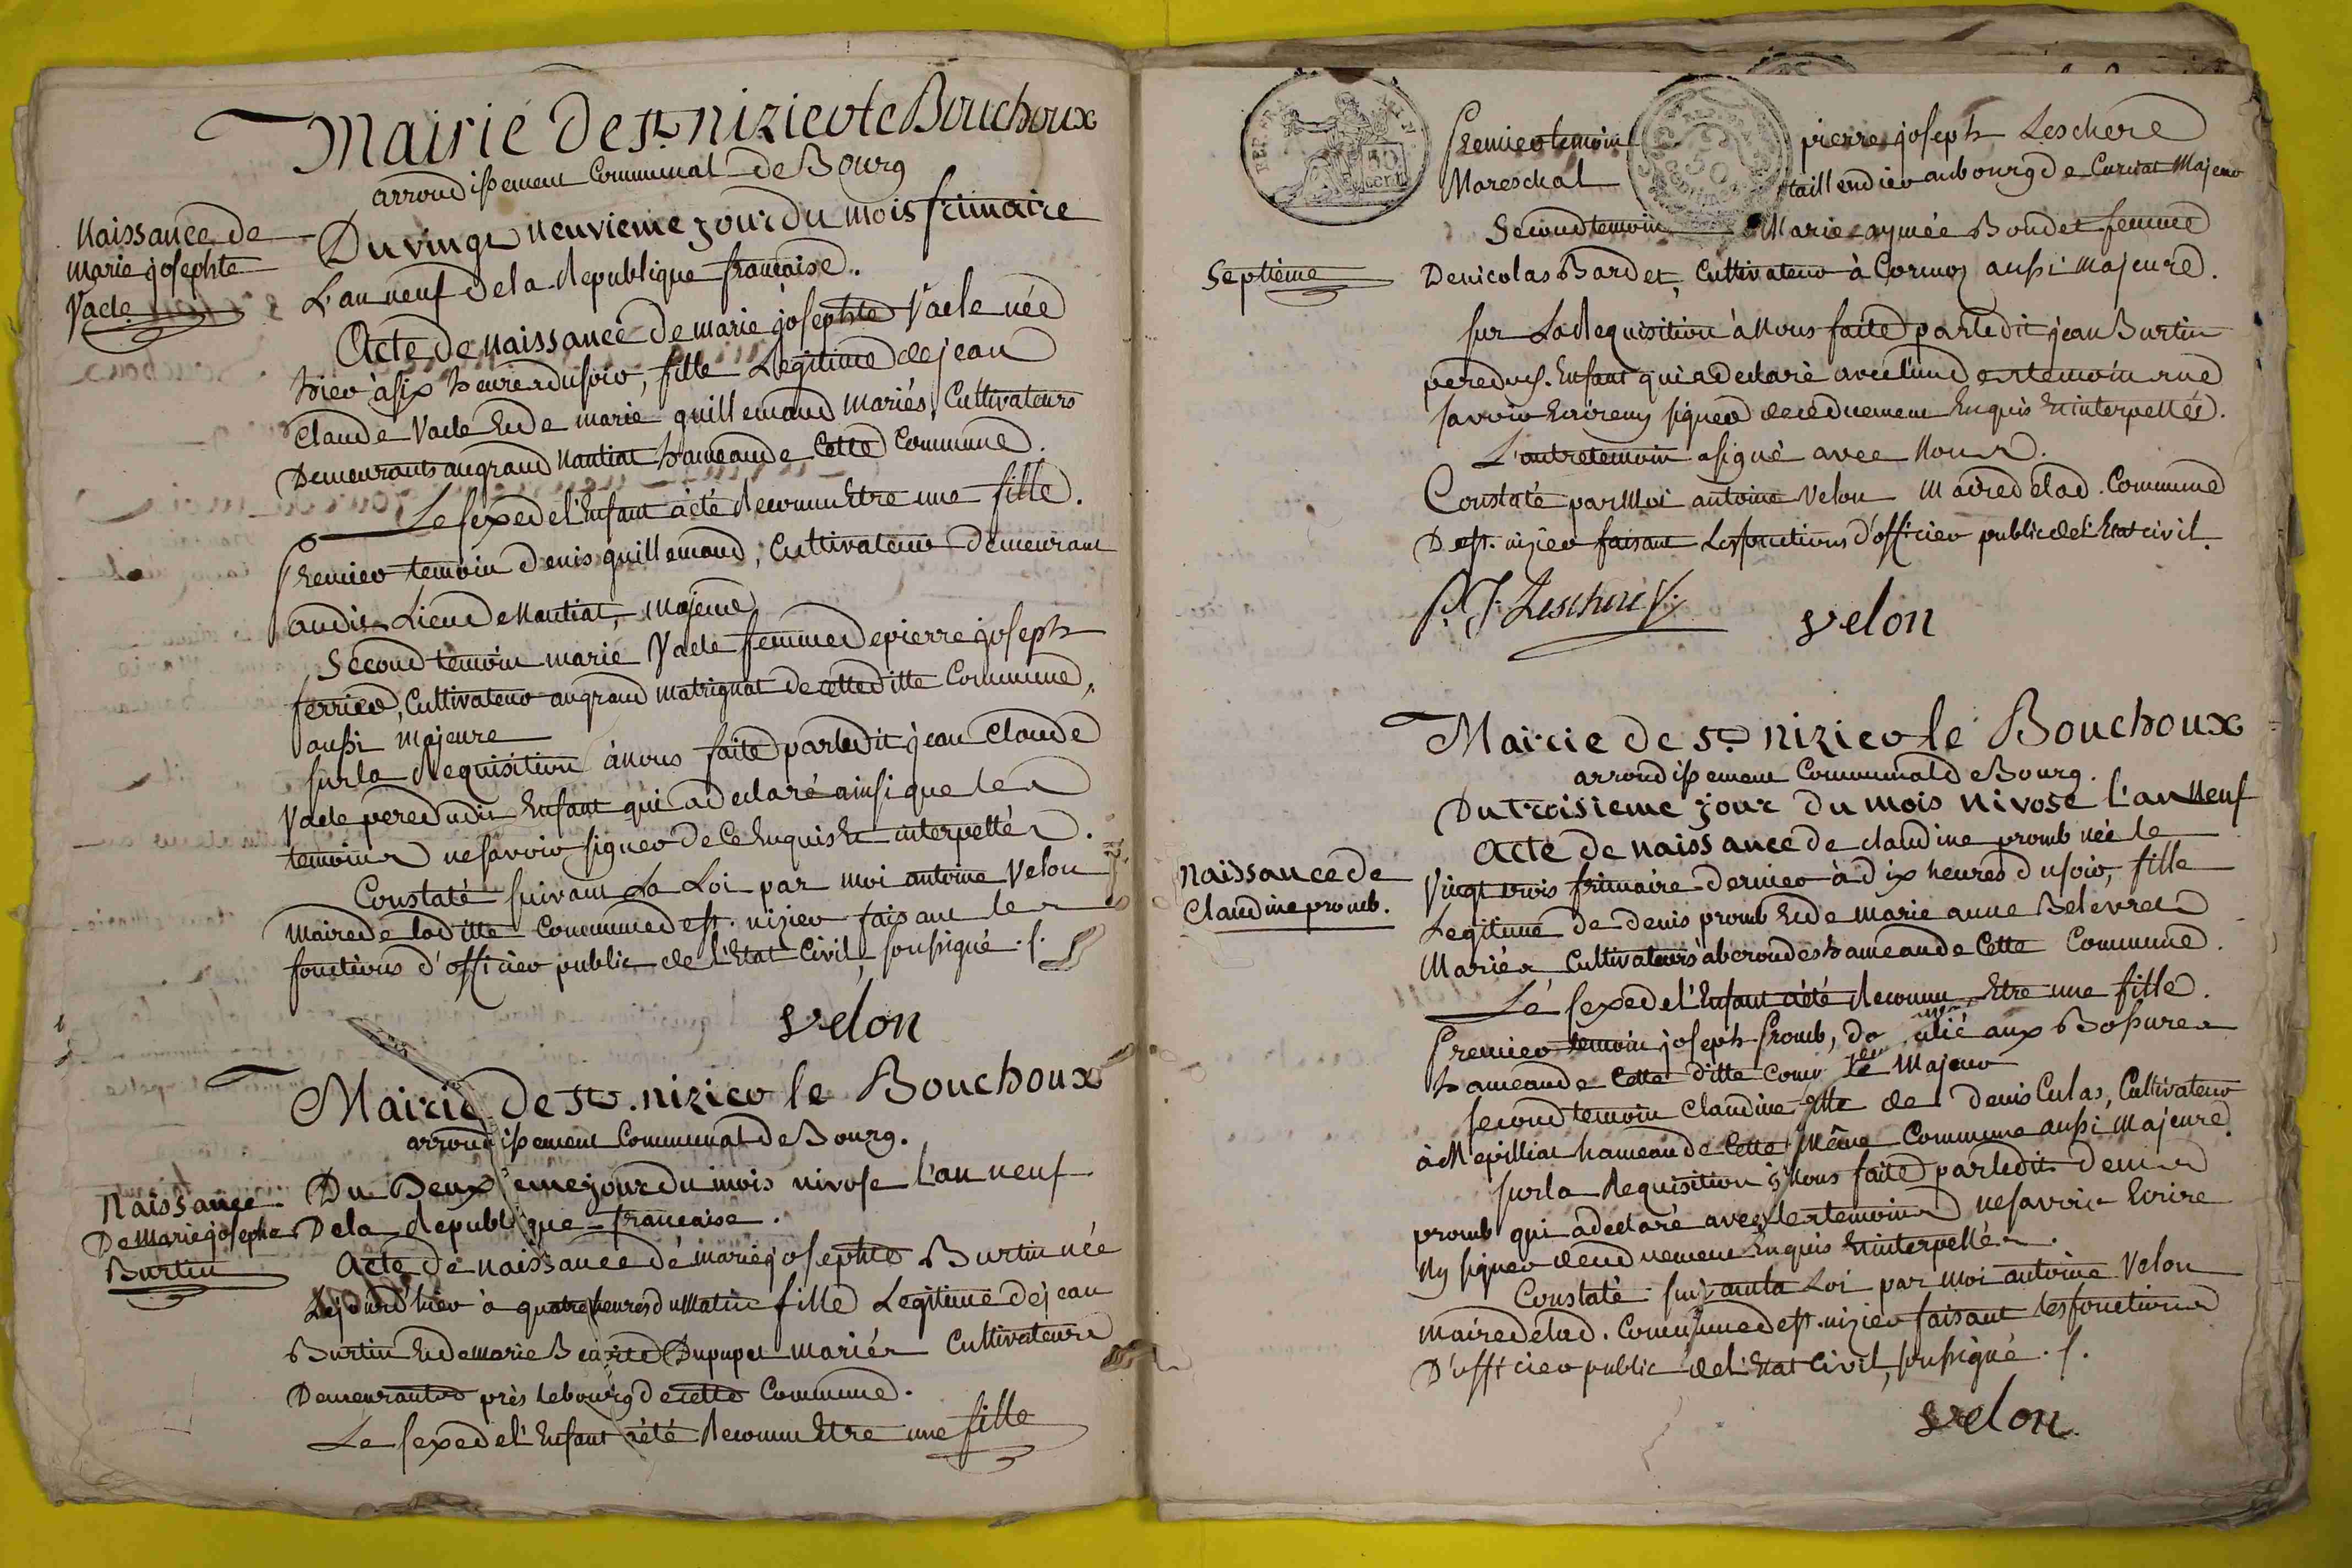 Mairie de St nizier le Bouchoux
arrondissement Communal de Bourg
Naissance de
marie josephte
Vacle
Du vingt neuvieme jour du mois frimaire
L'an neuf de la Republique francaise.
Acte de naissance de marie josephte Vacle née
hier à six heures du soir, fille Legitime de jean
claude Vacle Et de marie guillemaud mariés, Cultivateurs
Demeurants au grand Nantiat hameau de Cette Commune.
Le sexe de l'Enfant a été Reconnu Etre une fille.
Premier temoin denis guillemaud, Cultivateur demeurant
audit Lieu de Nantiat, majeur
Second temoin marie Vacle femme de pierre joseph
ferrier, Cultivateur au grand matrignat de cette ditte Commune,
aussi majeure
sur la Requisition à nous faite par ledit jean Claude
Vacle pere dudit Enfant qui a declaré ainsi que les
temoins ne savoir signer de Ce Enquis Et interpellés.
Constaté suivant La Loi par moi antoine Velon
maire de laditte Commune de st. nizier faisant les
fonctions d'officier public de l'Etat Civil, soussigné
velon
Mairie de St. nizier le Bouchoux
arrondissement Communal de Bourg.
Naissance
De Marie josephe
Burtin
Du Deuxieme jour du mois nivose L'an neuf
De la Republique francaise.
Acte de naissance de marie josephte Burtin née
à quatre heures du Matin fille Legitime de jean
Burtin Et de marie Dupupet mariés Cultivateurs
Demeurants près le bourg de cette Commune.
Le sexe de l'Enfant a été Reconnu Etre une fille
Premier temoin pierre joseph Leschere
Mareschal taillendier au bourg de Curciat Majeur
Second temoin Marie aymée Boudet femme
Septième
De nicolas Bardet, Cultivateur à Cormoz aussi Majeure.
sur La Requisition à Nous faite par ledit jean Burtin
pere dud. Enfant qui a declaré avec l'un des temoins ne
savoir Ecrire ny signer de ce duement Enquis Et interpellés.
L'autre temoin a signé avec Nous.
Constaté par Moi antoine Velon Maire de lad. Commune
De st. nizier faisant Les fonctions d'officier public de l'Etat civil.
P. J. Leschere
velon
Mairie de St nizier le Bouchoux
arrondissement Communal de Bourg.
Du troisieme jour du mois nivose l'an neuf
Naissance de
Claudine promb.
Acte de naissance de claudine promb née le
Vingt trois frimaire dernier à dix heures du soir, fille
Legitime de denis promb Et de marie anne Belevret
Mariés Cultivateurs à beroudes hameau de Cette Commune.
Le sexe de l'Enfant a été Reconnu Etre une fille.
Premier temoin joseph Promb, aux Bossures
hameau de Cette ditte Majeur
second temoin Claudine de denis Culas, Cultivateur
à Mepilliat hameau de Cette Même Commune aussi Majeure.
sur la Requisition à Nous faite par ledit denis
promb qui a declaré avec les temoins ne savoir Ecrire
Ny signer de ce duement Enquis Et interpellés.
Constaté suivant la Loi par Moi antoine Velon
maire de lad. Commune de st. nizier faisant les fonctions
D'officier public de l'Etat Civil, soussigné
velon